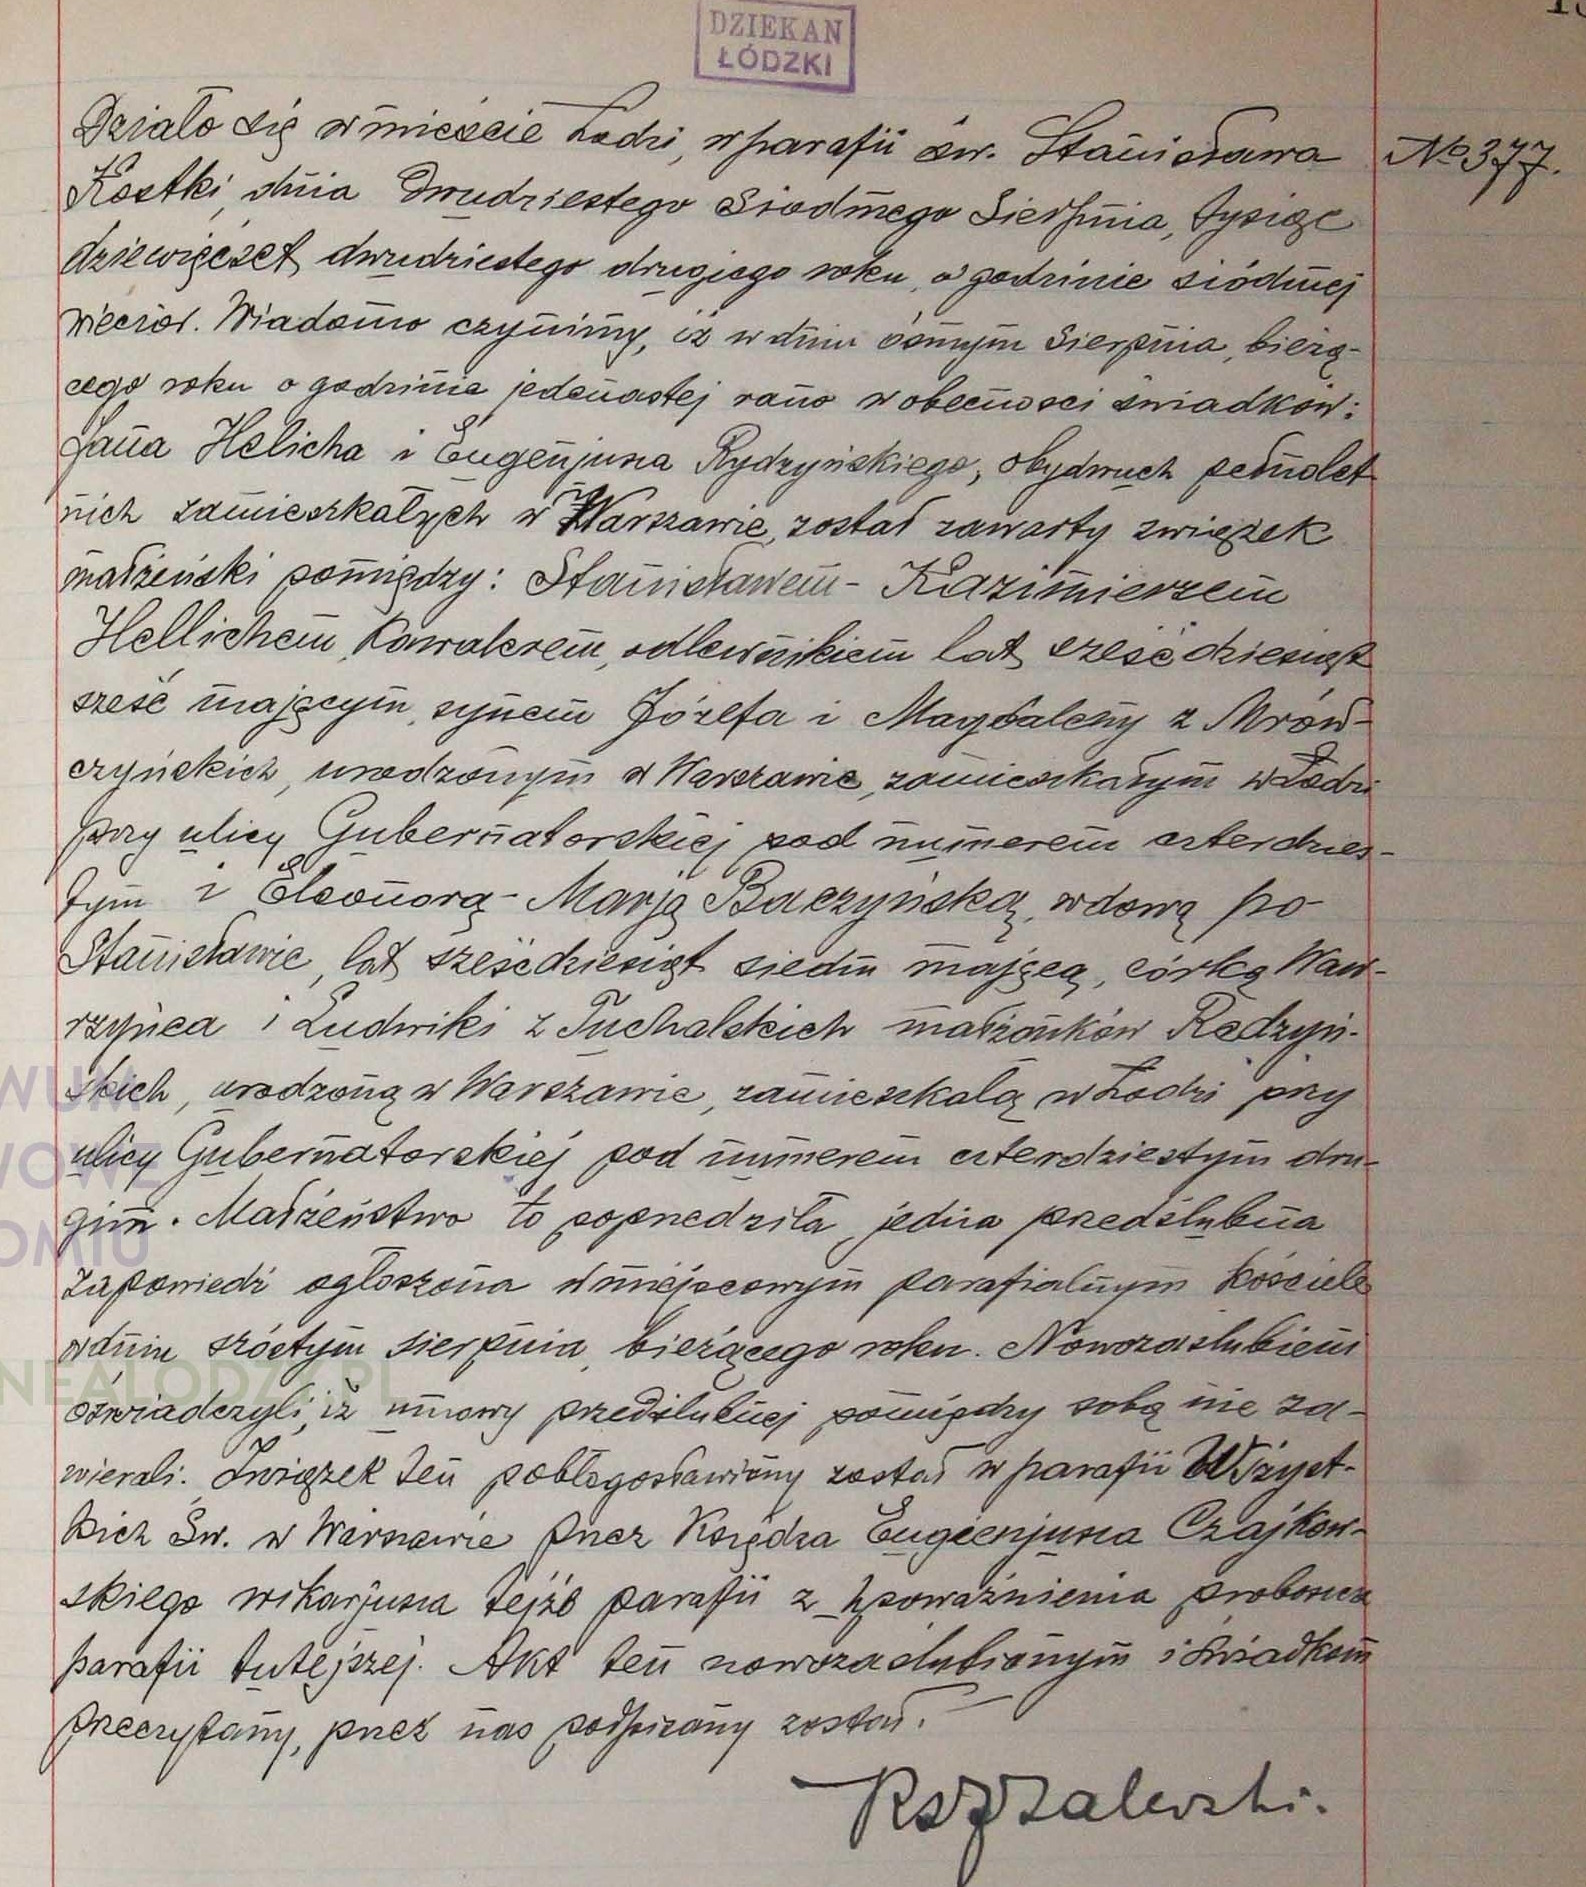 DZIEKAN
ŁÓDZKI
Działo się w mieście Łodzi, w parafii św. Stanisława
№ 377.
Kostki, dnia dwudziestego siodmego Sierpnia, tysiąc
dziewięćset dwudziestego drugiego roku, o godzinie siódmej
wieczór. Wiadomo czynimy, iż w dniu ósmym Sierpnia, bieżą-
cego roku o godzinie jedenastej rano w obecności świadków:
Jana Helicha i Eugenjusza Rydzyńskiego, obydwuch pełnolet
nich zamieszkałych w Warszawie, został zawarty związek
małżeński pomiędzy: Stanisławem - Kazimierzem
Hellichem, Kawalerem, odlewnikiem lat sześćdziesiąt
sześć mającym, synem Józefa i Magdaleny z Mrów-
czyńskich, urodzonym w Warszawie, zamieszkałym w Łodzi
przy ulicy Gubernatorskiej pod numerem czterdzies-
tym i Eleonorą - Marją Baczyńską, wdową po
Stanisławie, lat sześćdziesiąt siedm mającą, córką Waw-
rzyńca i Ludwiki z Puchalskich małżonków Redzyń-
skich, urodzoną w Warszawie, zamieszkałą w Łodzi przy
ulicy Gubernatorskiej pod numerem czterdziestym dru-
gim. Małżeństwo to poprzedziła, jedna przedślubna
zapowiedź ogłoszona w miejscowym parafialnym kościele
w dniu szóstym sierpnia, bieżącego roku. Nowozaślubieni
oświadczyli, iż umowy przedślubnej pomiędzy sobą nie za-
wierali. Związek ten pobłogosławiony został w parafii Wszyst-
kich Św. w Warszawie przez Księdza Eugeenjusza Czajkow-
skiego wikarjusza tejże parafii z upoważnienia proboszcza
parafii tutejszej. Akt ten nowozaślubionym i świadkom
przeczytany, przez nas podpisany został.